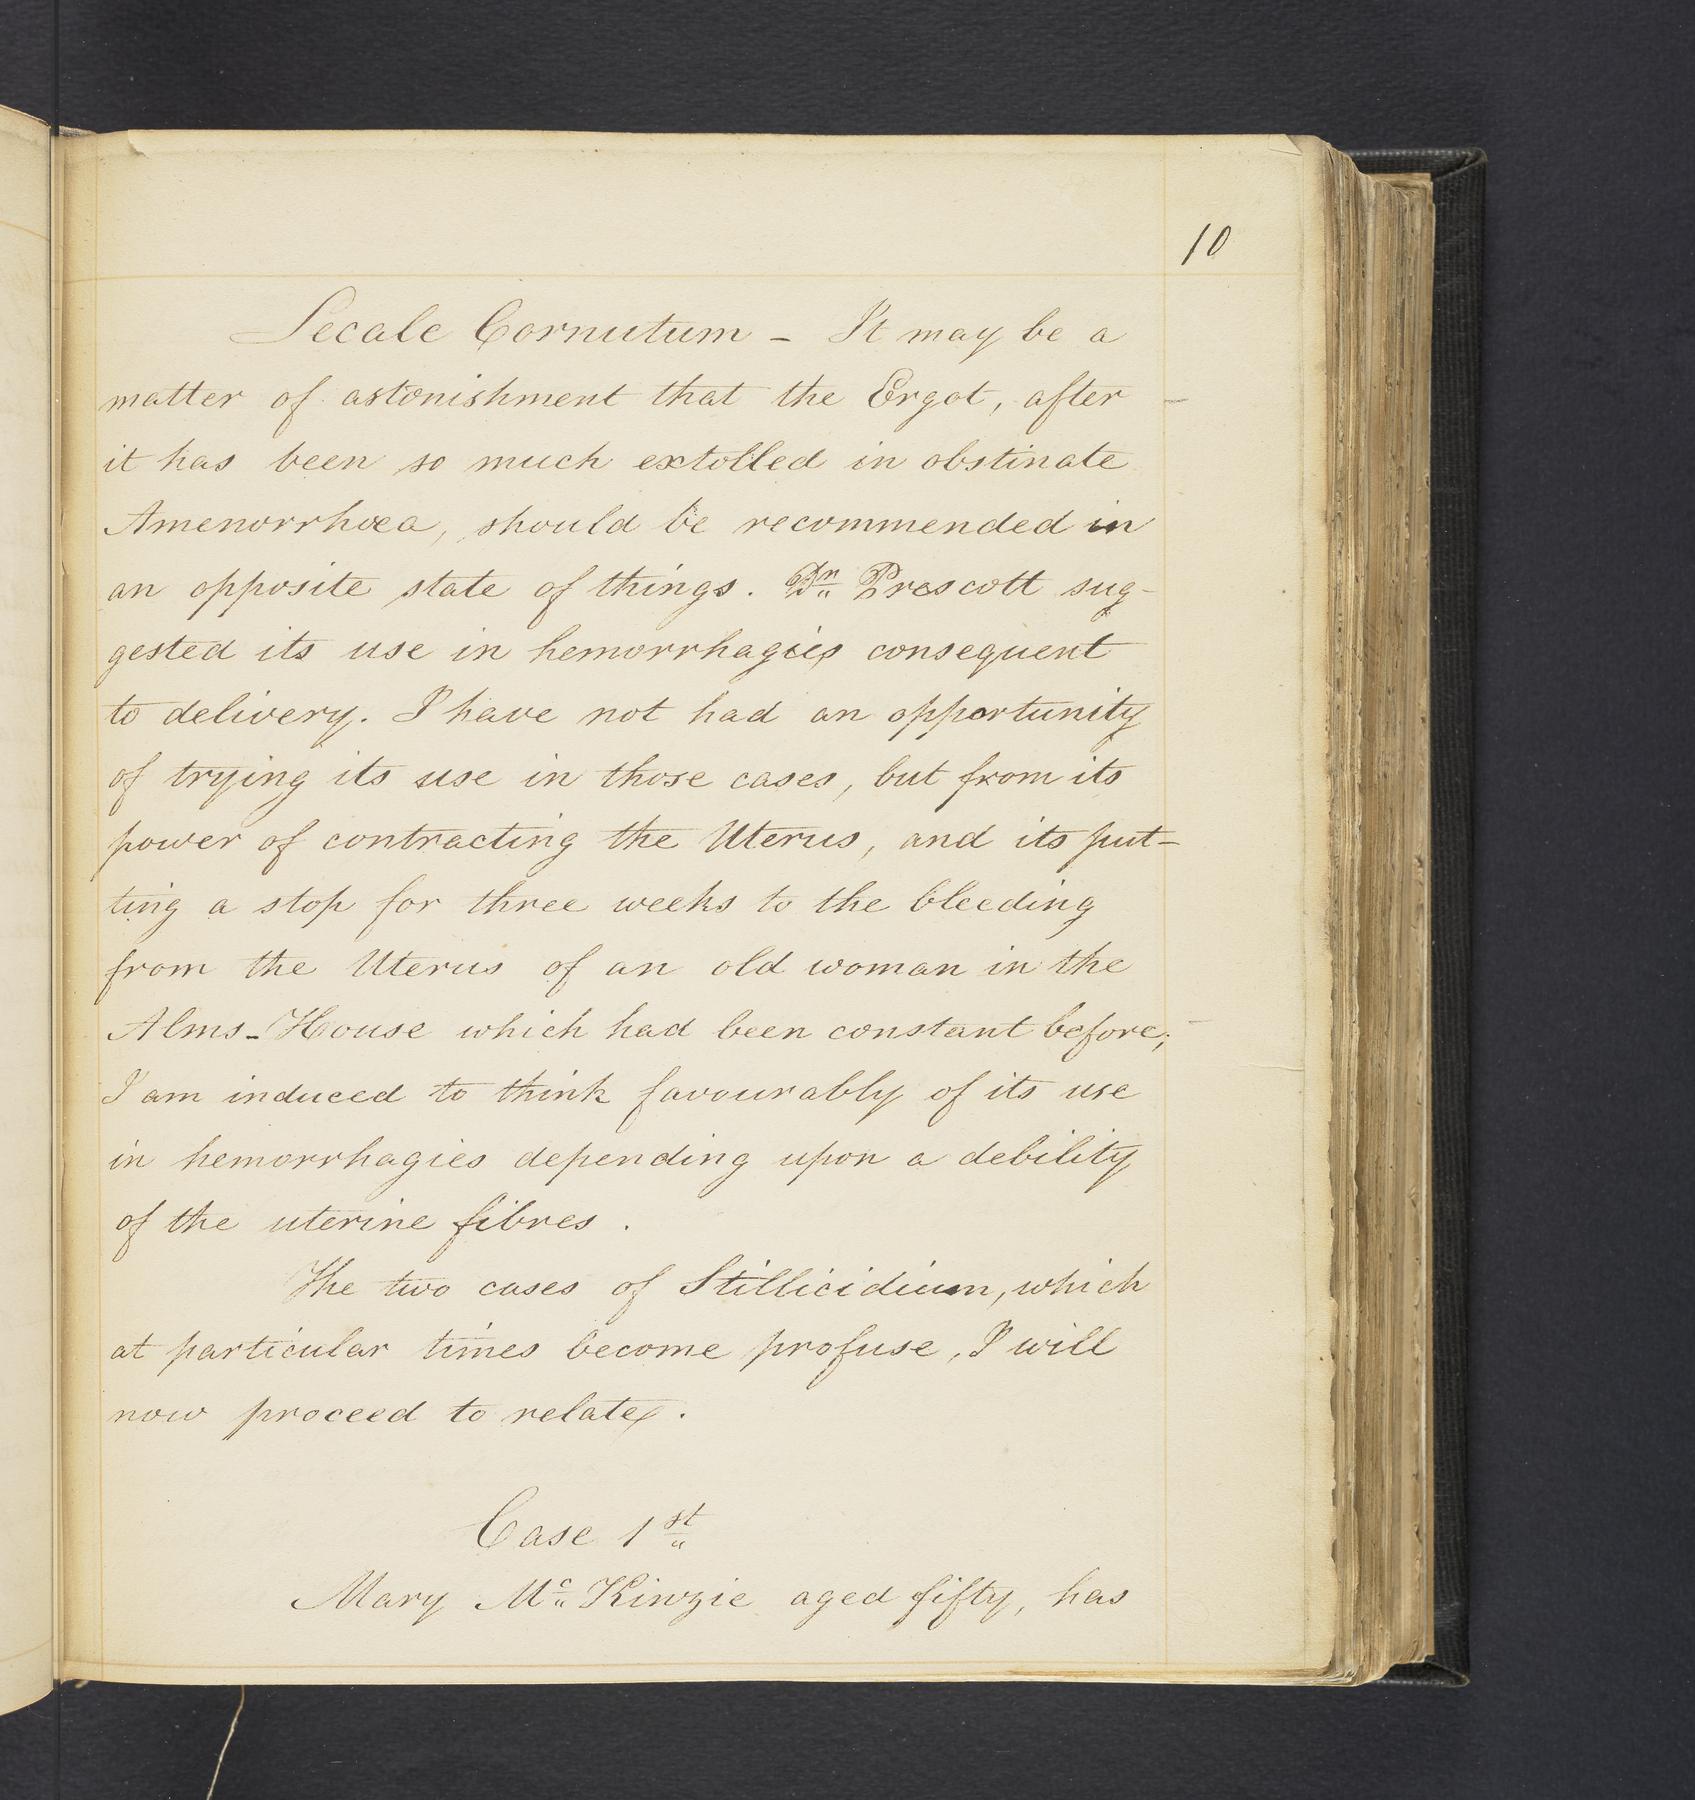 10
Secale Cornutum - It may be a
matter of astonishment that the Ergot, after -
it has been so much extolled in obstinate
Amenorrhœa, should be recommended in
an opposite state of things. Dr. Prescott sug-
gested its use in hemorrhagies consequent
to delivery. I have not had an opportunity
of trying its use in those cases, but from its
power of contracting the Uterus, and its put-
ting a stop for three weeks to the bleeding
from the Uterus of an old woman in the
Alms-House which had been constant before; -
I am induced to think favourably of its use
in hemorrhagies depending upon a debility
of the uterine fibres.
The two cases of Stillicidium, which
at particular times become profuse, I will
now proceed to relate.
Case 1st
Mary McKinzie aged fifty, has